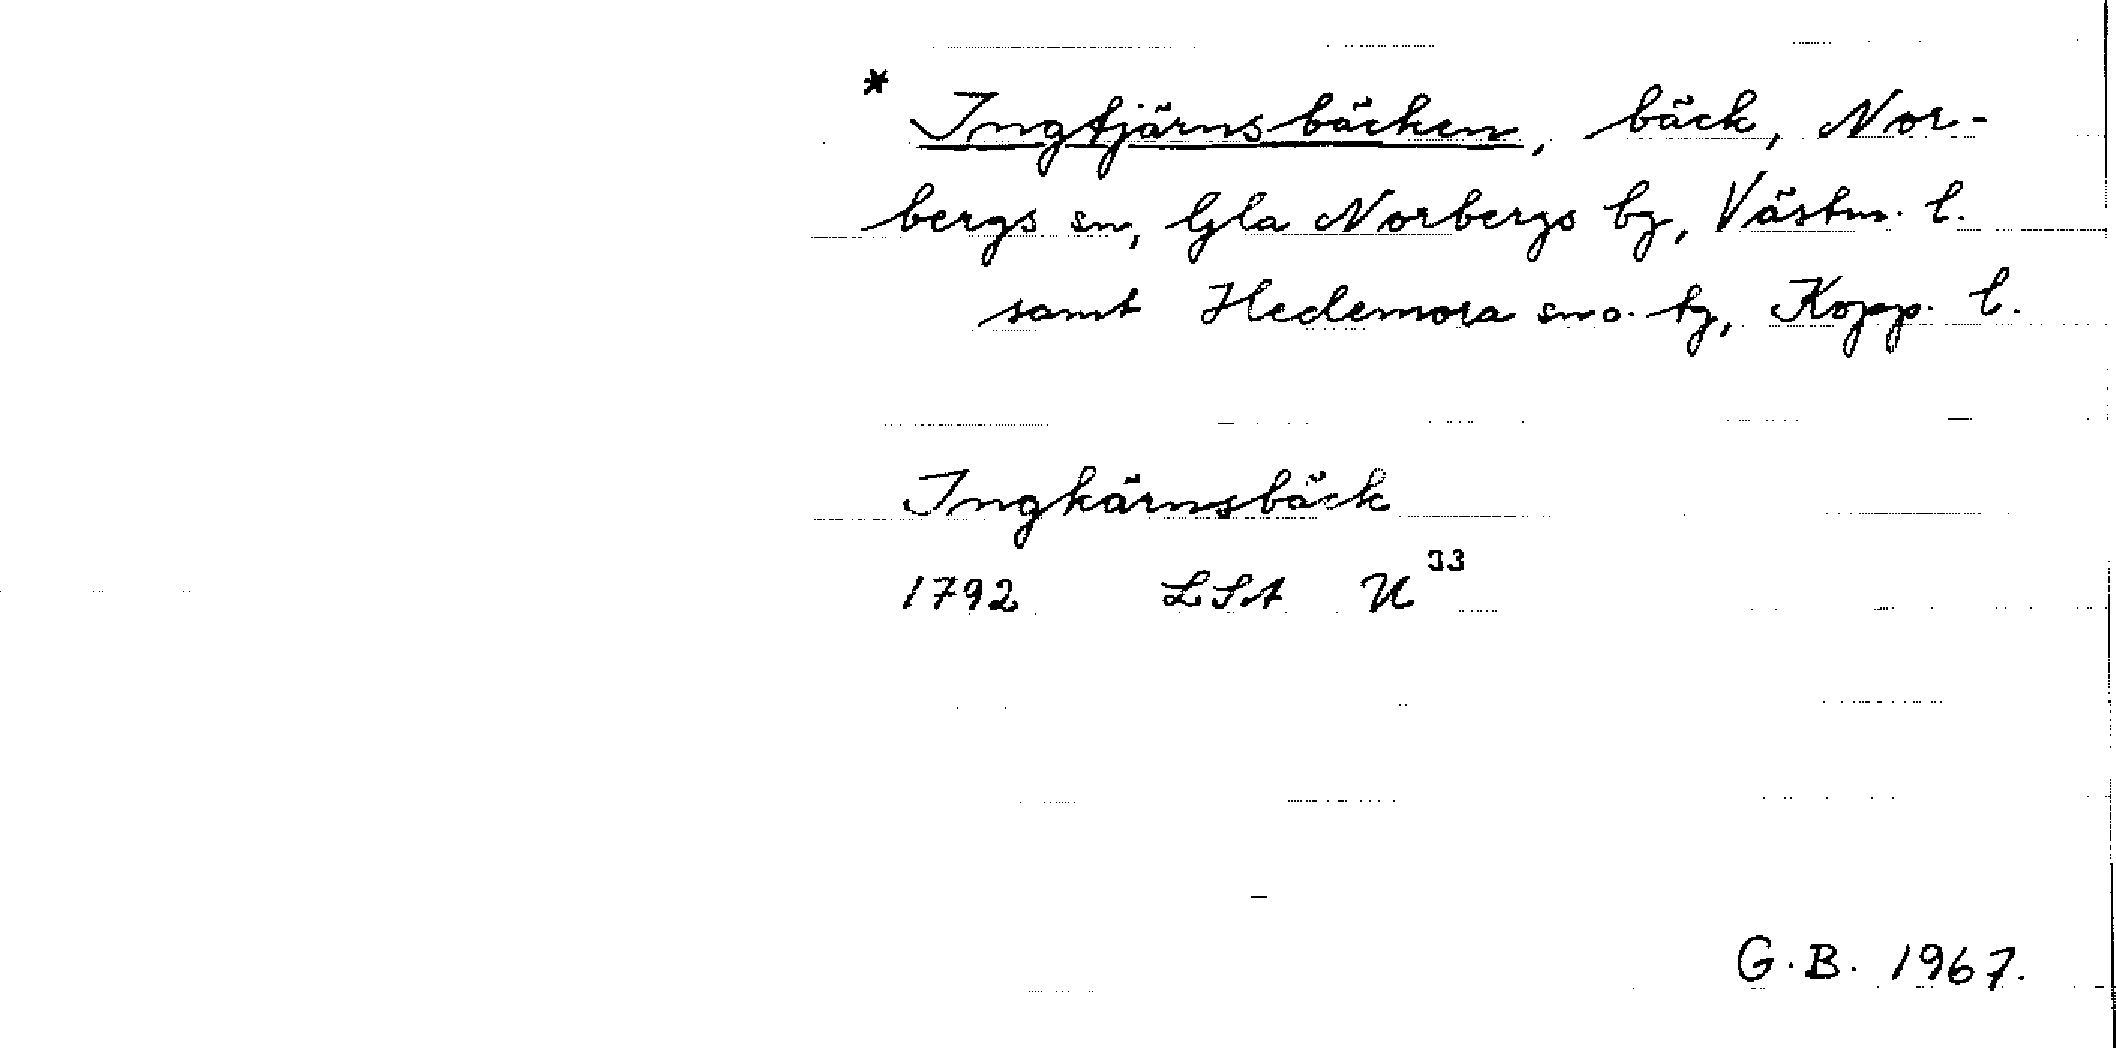 * Ingtjärnsbäcken, bäck, Nor-
bergs sn, Gla Norbergs bg, Västm. l.
samt Hedemora sn o. tg, Kopp. l.
Ingkärnsbäck
1792 LSA U³³
G.B. 1967.